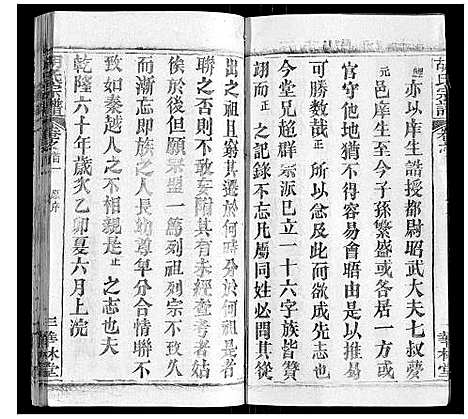 胡氏宗譜 卷之首
華林堂
亦以庠生誥授都尉昭武大夫七叔夢
元邑庠生至今子孫繁盛或各居一方或
官守他地猶不得容易會晤由是何
可勝數哉正所以念及此欲成先志
今堂兄超群宗派已立一十六字族皆贊
翊而正之記錄不忘凡屬同姓必問其從
出之祖且窮其遷於何時分於何祖是者
聯之否則不敢妄附其有未經查衣
俟於後但宗盟一篤列祖列宗不致久
而漸忘即族之人長幼尊卑分合情聯不
致如秦越人之不相親是正之志也夫
乾隆六十年歲次乙卯夏六月上浣
胡氏宗譜 卷之首 序
三 華林堂